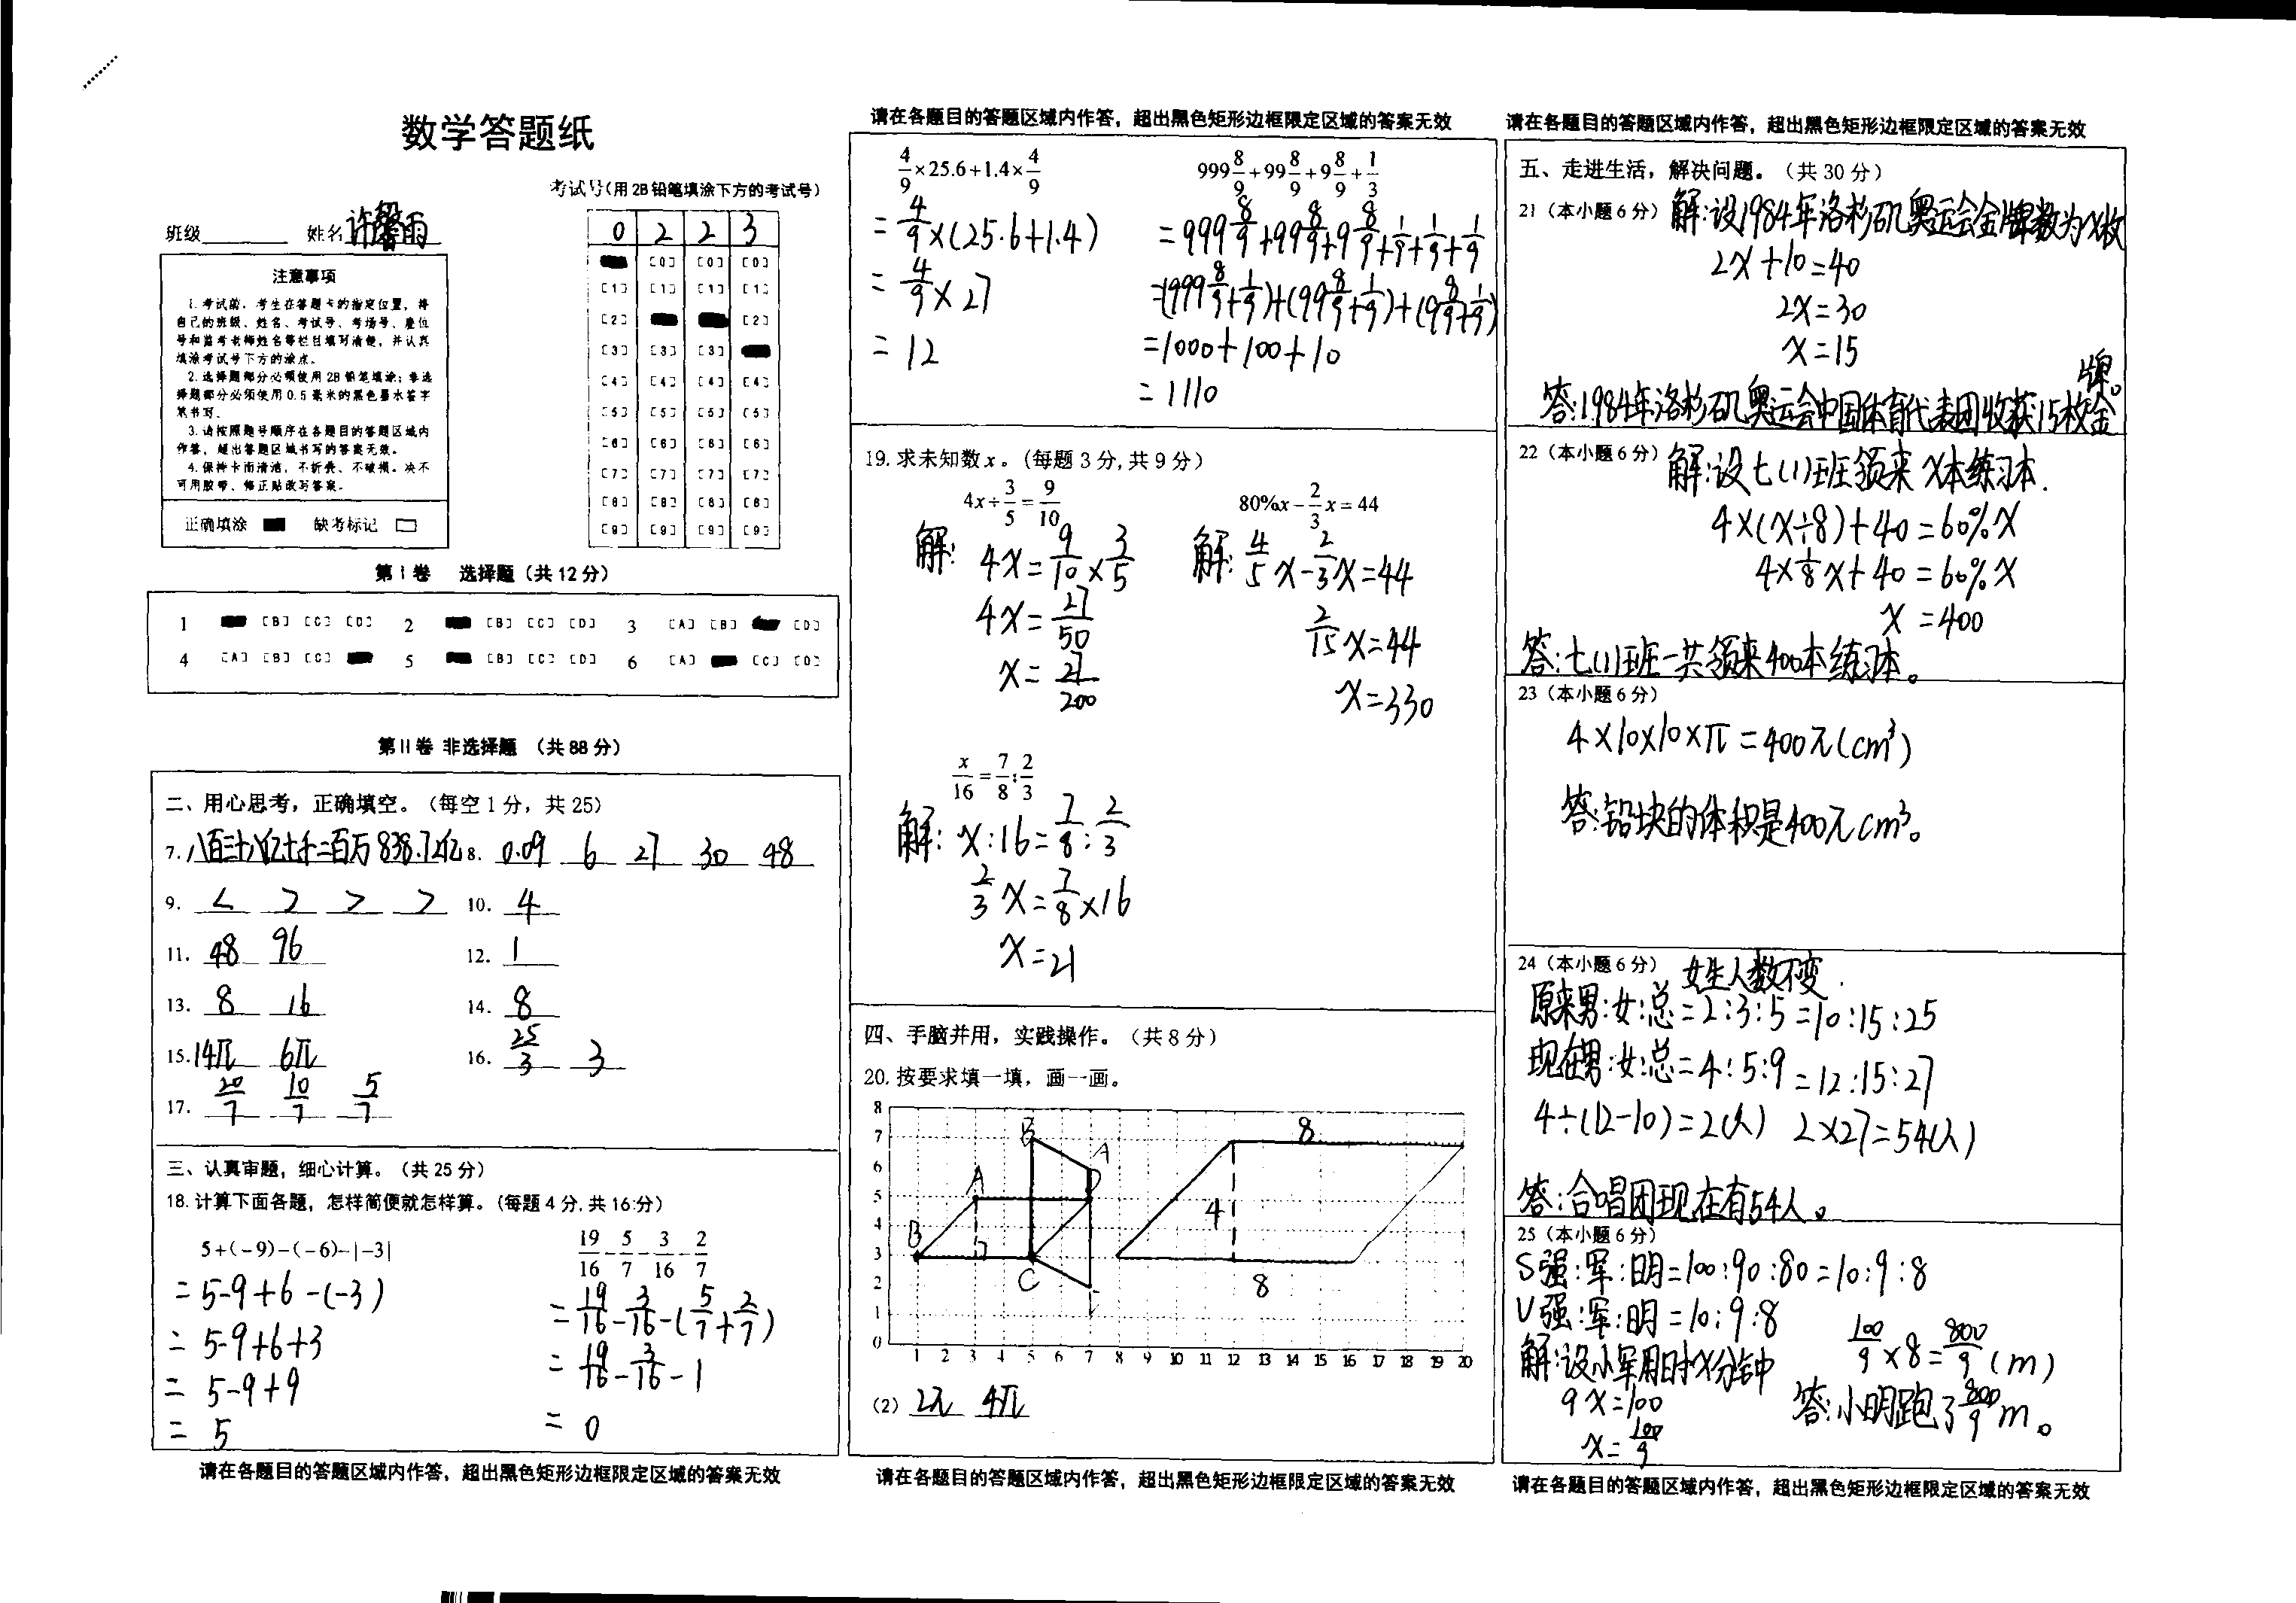 数学答题纸
考试号(用 2B 铅笔填涂下方的考试号)
班级 姓名 许馨雨
0 2 2 3
[0] [0] [0]
[1] [1] [1] [1]
[2] [2]
[3] [3] [3]
[4] [4] [4] [4]
[5] [5] [5] [5]
[6] [6] [6] [6]
[7] [7] [7] [7]
[8] [8] [8] [8]
[9] [9] [9] [9]
注意事项
1.考试前,考生在答题卡的指定位置,将
自己的班级、姓名、考试号、考场号、座位
号和监考老师姓名等栏目填写清楚,并认真
填涂考试号下方的涂点。
2.选择题部分必须使用2B铅笔填涂;非选
择题部分必须使用0.5毫米的黑色墨水签字
笔书写。
3.请按照题号顺序在各题目的答题区域内
作答,超出答题区域书写的答案无效。
4.保持卡面清洁,不折叠、不破损。决不
可用胶带、修正贴改写答案。
正确填涂 缺考标记
第Ⅰ卷 选择题(共12分)
1 [B] [C] [D] 2 [B] [C] [D] 3 [A] [B] [D]
4 [A] [B] [C] 5 [B] [C] [D] 6 [A] [C] [D]
第Ⅱ卷 非选择题 (共88分)
二、用心思考,正确填空。(每空1分,共25)
7. 八百三十八亿七千二百万 838.72亿 8. 0.09 6 27 30 48
9. < > > > 10. 4
11. 48 96 12. 1
13. 8 16 14. 8
15. 14π 6π 16. 25/3 3
17. 20/7 10/7 5/7
三、认真审题,细心计算。(共25分)
18.计算下面各题,怎样简便就怎样算。(每题4分,共16分)
5+(-9)-(-6)-|-3|
=5-9+6-(-3)
=5-9+6+3
=5-9+9
=5
19/16-5/7-3/16-2/7
=19/16-3/16-(5/7+2/7)
=19/16-3/16-1
=0
请在各题目的答题区域内作答,超出黑色矩形边框限定区域的答案无效
请在各题目的答题区域内作答,超出黑色矩形边框限定区域的答案无效
4/9×25.6+1.4×4/9
=4/9×(25.6+1.4)
=4/9×27
=12
999 8/9+99 8/9+9 8/9+1/3
=999 8/9+99 8/9+9 8/9+1/9+1/9+1/9
=(999 8/9+1/9)+(99 8/9+1/9)+(9 8/9+1/9)
=1000+100+10
=1110
19.求未知数x。(每题3分,共9分)
4x÷3/5=9/10
解: 4x=9/10×3/5
4x=27/50
x=27/200
80%x-2/3x=44
解: 4/5x-2/3x=44
2/15x=44
x=330
x/16=7/8:2/3
解: x:16=7/8:2/3
2/3x=7/8×16
x=21
四、手脑并用,实践操作。(共8分)
20.按要求填一填,画一画。
8
7
6
5
4
3
2
1
0
1 2 3 4 5 6 7 8 9 10 11 12 13 14 15 16 17 18 19 20
B A
A D
B
C
8
4
8
(2) 2π 4π
请在各题目的答题区域内作答,超出黑色矩形边框限定区域的答案无效
请在各题目的答题区域内作答,超出黑色矩形边框限定区域的答案无效
五、走进生活,解决问题。(共30分)
21(本小题6分) 解:设1984年洛杉矶奥运会金牌数为x枚
2x+10=40
2x=30
x=15
答:1984年洛杉矶奥运会中国体育代表团收获15枚金牌。
22(本小题6分) 解:设七(1)班领来x本练习本.
4×(x÷8)+40=60%x
4×1/8x+40=60%x
x=400
答:七(1)班一共领来400本练习本。
23(本小题6分)
4×10×10×π=400π(cm³)
答:铅块的体积是400πcm³。
24(本小题6分) 女生人数不变.
原来男:女:总=2:3:5=10:15:25
现在男:女:总=4:5:9=12:15:27
4÷(12-10)=2(人) 2×27=54(人)
答:合唱团现在有54人。
25(本小题6分)
S强:军:明=100:90:80=10:9:8
V强:军:明=10:9:8
解:设小军用时x分钟
9x=100
x=100/9
100/9×8=800/9(m)
答:小明跑了800/9m。
请在各题目的答题区域内作答,超出黑色矩形边框限定区域的答案无效